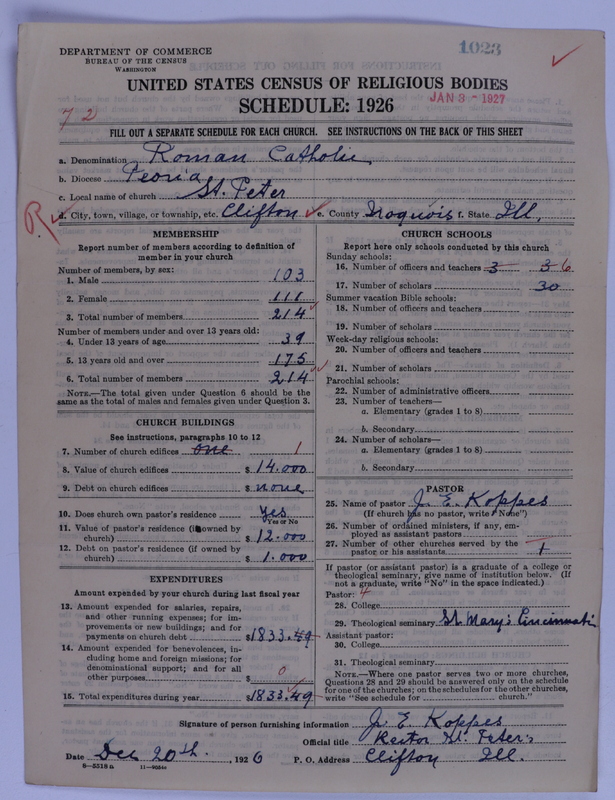 1023
DEPARTMENT OF COMMERCE
BUREAU OF THE CENSUS
WASHINGTON
UNITED STATES CENSUS OF RELIGIOUS BODIES
SCHEDULE: 1926
JAN 3 - 1927
72
FILL OUT A SEPARATE SCHEDULE FOR EACH CHURCH. SEE INSTRUCTIONS ON THE BACK OF THIS SHEET
a. Denomination Roman Catholic
b. Diocese Peoria
c. Local name of church St. Peter
R
d. City, town, village, or township, etc. Clifton e. County Iroquois f. State Ill.
MEMBERSHIP
Report number of members according to definition of
member in your church
Number of members, by sex:
1. Male 103
2. Female 111
3. Total number of members 214
Number of members under and over 13 years old:
4. Under 13 years of age 39
5. 13 years old and over 175
6. Total number of members 214
NOTE.—The total given under Question 6 should be the
same as the total of males and females given under Question 3.
CHURCH BUILDINGS
See instructions, paragraphs 10 to 12
7. Number of church edifices one 1
8. Value of church edifices $ 14.000
9. Debt on church edifices $ none
10. Does church own pastor's residence yes
Yes or No
11. Value of pastor's residence (if owned by
church) $ 12.000
12. Debt on pastor's residence (if owned by
church) $ 1.000
EXPENDITURES
Amount expended by your church during last fiscal year
13. Amount expended for salaries, repairs,
and other running expenses; for im-
provements or new buildings; and for
payments on church debt $ 1833.49
14. Amount expended for benevolences, in-
cluding home and foreign missions; for
denominational support; and for all
other purposes $ 0
15. Total expenditures during year $ 1833.49
CHURCH SCHOOLS
Report here only schools conducted by this church
Sunday schools:
16. Number of officers and teachers 3 3 6
17. Number of scholars 30
Summer vacation Bible schools:
18. Number of officers and teachers
19. Number of scholars
Week-day religious schools:
20. Number of officers and teachers
21. Number of scholars
Parochial schools:
22. Number of administrative officers
23. Number of teachers—
a. Elementary (grades 1 to 8)
b. Secondary
24. Number of scholars—
a. Elementary (grades 1 to 8)
b. Secondary
PASTOR
25. Name of pastor J. E. Koppes
(If church has no pastor, write "None")
26. Number of ordained ministers, if any, em-
ployed as assistant pastors
27. Number of other churches served by the
pastor or his assistants 1
If pastor (or assistant pastor) is a graduate of a college or
theological seminary, give name of institution below. (If
not a graduate, write "No" in the space indicated.)
Pastor: 4
28. College
29. Theological seminary St. Mary's Cincinnati
Assistant pastor:
30. College
31. Theological seminary
NOTE.—Where one pastor serves two or more churches,
Questions 28 and 29 should be answered only on the schedule
for one of the churches; on the schedules for the other churches,
write "See schedule for church."
Signature of person furnishing information J. E. Koppes
Official title Rector St. Peter's
Date Dec 20th. , 1926 P. O. Address Clifton Ill.
8—5518 a 11—9054